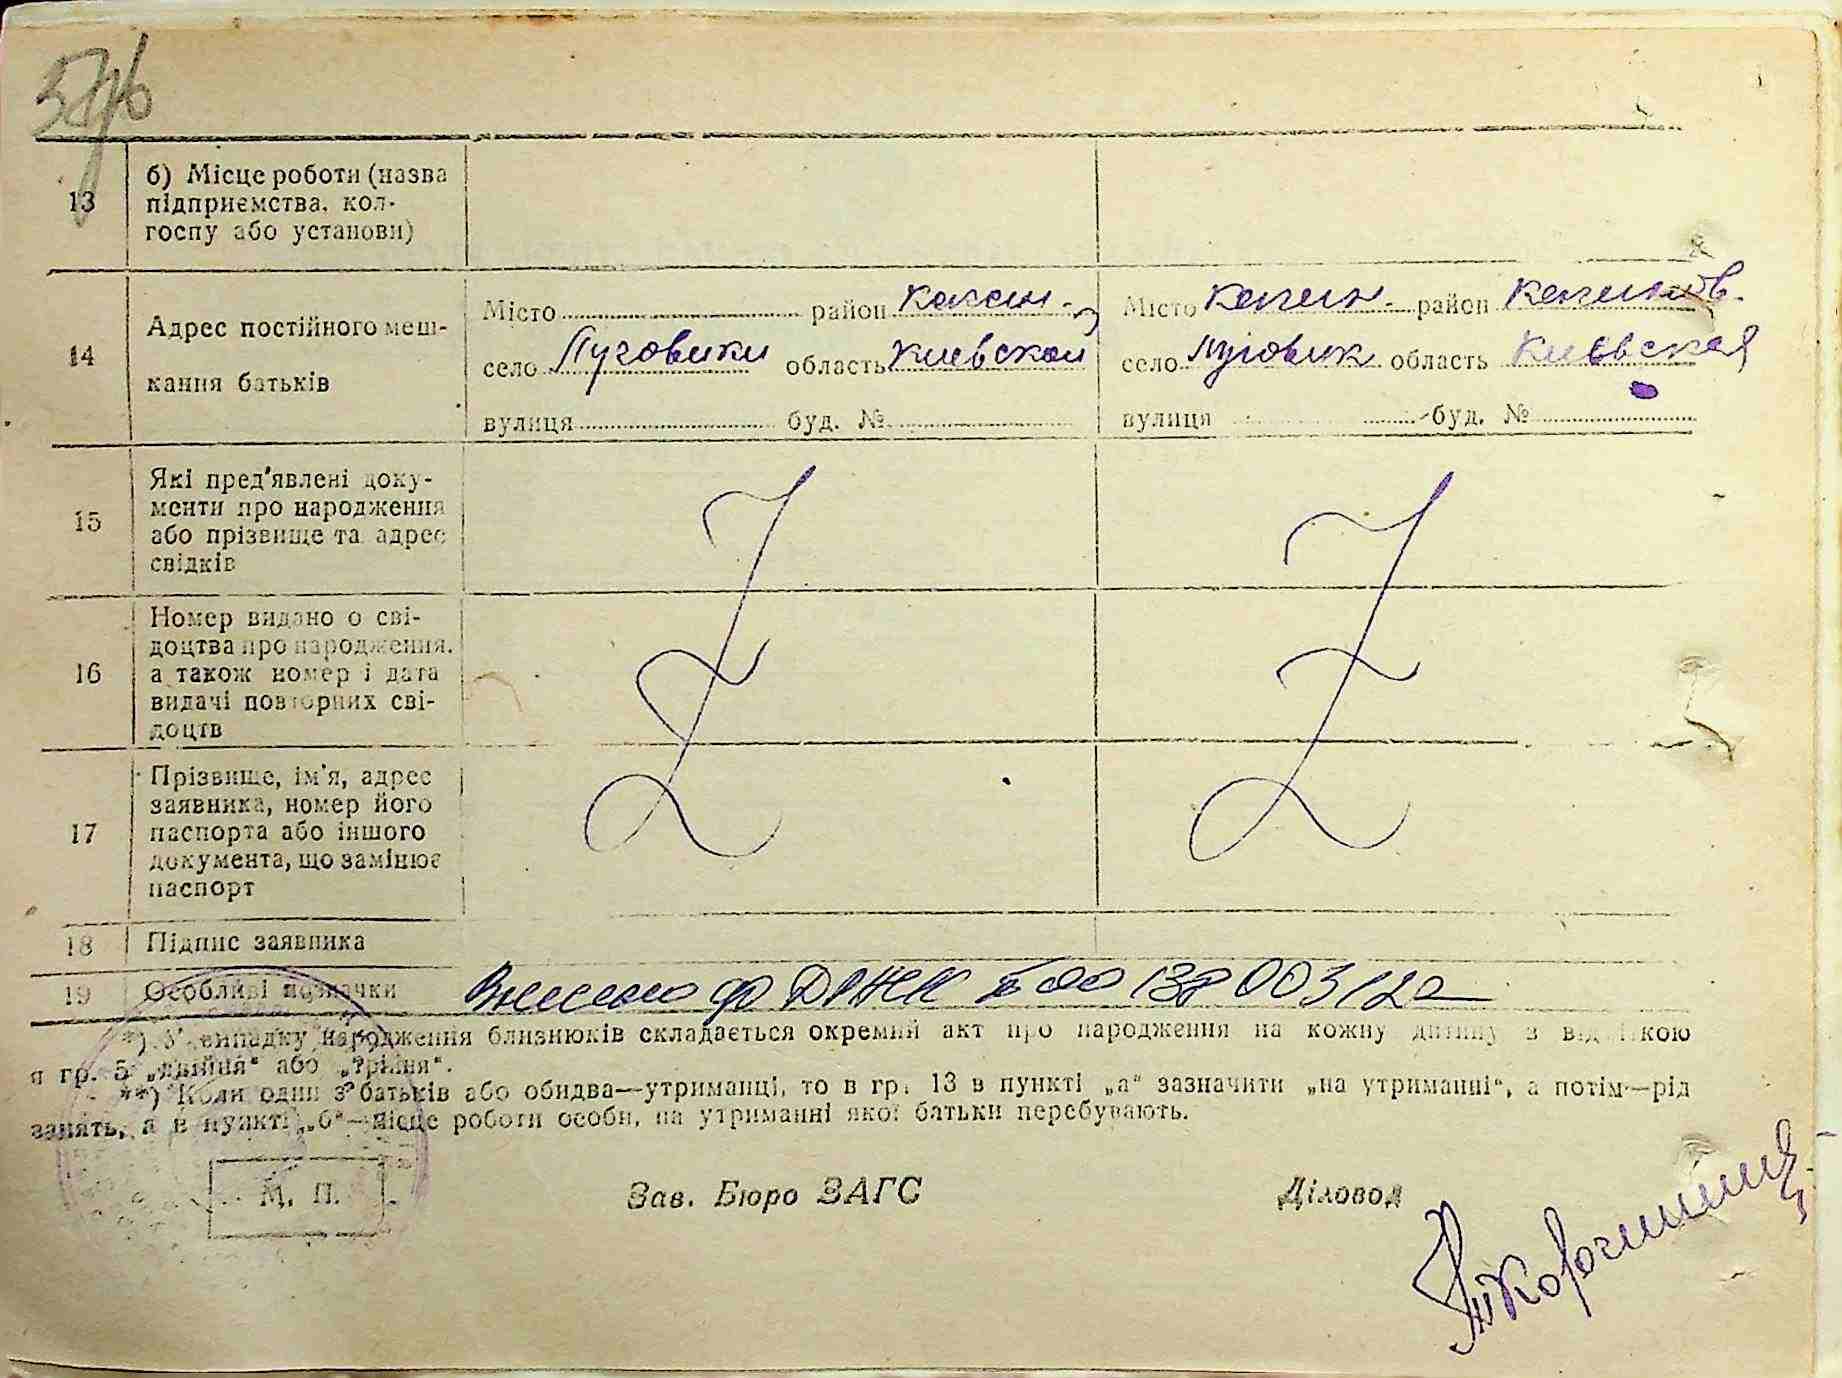 13 б) Місце роботи (назва
підприємства, кол-
госпу або установи)
14 Адрес постійного меш-
кання батьків
Місто район
село Пуговики область Киевской
вулиця буд. №
Місто район
село Пуговик область Киевская
вулиця буд. №
15 Які пред'явлені доку-
менти про народження
або прізвище та адрес
свідків
16 Номер видано о сві-
доцтва про народження,
а також номер і дата
видачі повторних сві-
доцтв
17 Прізвище, ім'я, адрес
заявника, номер його
паспорта або іншого
документа, що замінює
паспорт
18 Підпис заявника
19 Особливі позначки Внесено ф ДРЖК 00138003122
*) У випадку народження близнюків складається окремий акт про народження на кожну дитину з відміткою
я гр. 5 „двійня“ або „трійня“.
**) Коли один з батьків або обидва—утриманці, то в гр. 13 в пункті „а“ зазначити „на утриманні“, а потім—рід
занять, а в пункті „б“—місце роботи особи, на утриманні якої батьки перебувають.
М. П.
Зав. Бюро ЗАГС Діловод